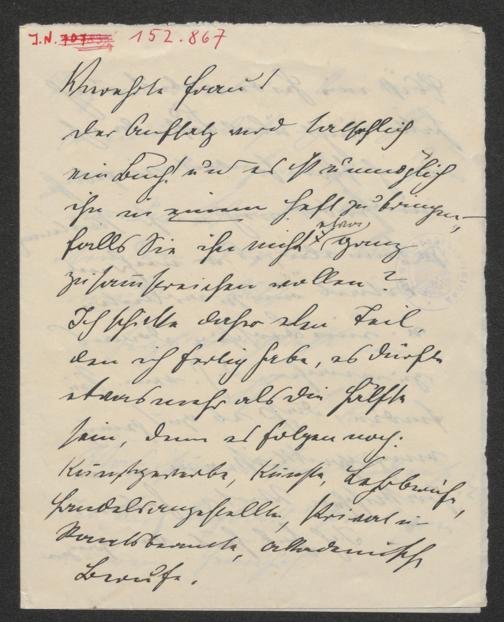 J.N. 152.867
Verehrte Frau!
der Aufsatz wird tatsächlich
ein Buch! und es ist unmöglich
ihn in einem Heft zu bringen,
falls Sie ihn nicht etwa ganz
zusammenstreichen wollen?
Ich schicke daher den Teil,
den ich fertig habe, es dürfte
etwas mehr als die Hälfte
sein, denn es folgen noch:
Kunstgewerbe, Künste, Lehrberufe,
Handelsangestellte, Privat u
Staatsbeamte, akademische
Berufe.